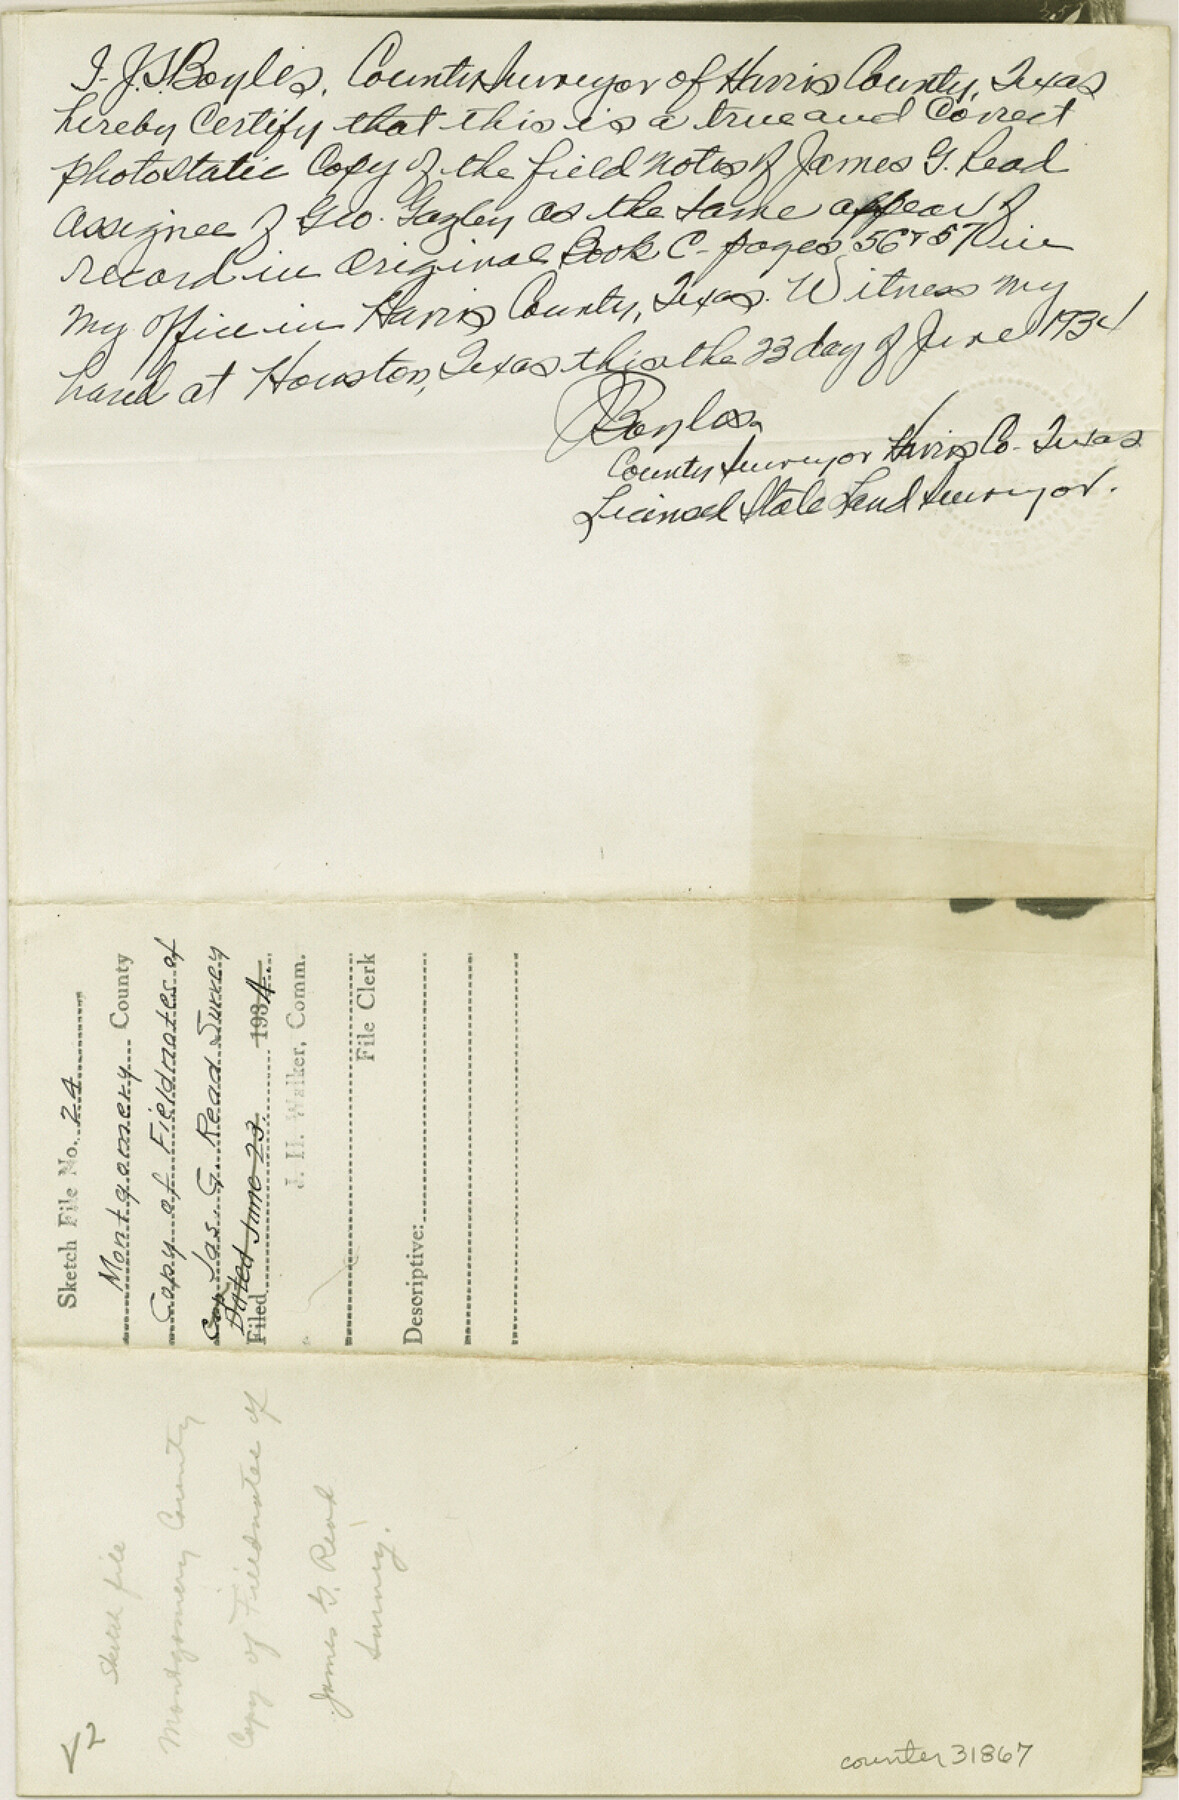 I. J.S. Boyles, County Surveyor of Harris County, Texas
hereby Certify that this is a true and Correct
photostatic Copy of the field notes of James G. Read
assignee of Geo. Gazley as the same appear of
record in Original Book C- pages 56 & 57 in
my office in Harris County, Texas. Witness my
hand at Houston, Texas this the 23 day of June 1934
JSBoyles.
County Surveyor Harris Co- Texas
Licensed State Land Surveyor.
Sketch File No. 24
Montgomery County
Copy of Fieldnotes of
Jas. G. Read Survey
Dated June 23
Filed 1934
J. H. Walker, Comm.
File Clerk
Descriptive:
Sketch file
Montgomery County
Copy of Fieldnotes of
James G. Read
Survey.
V2
counter 31867